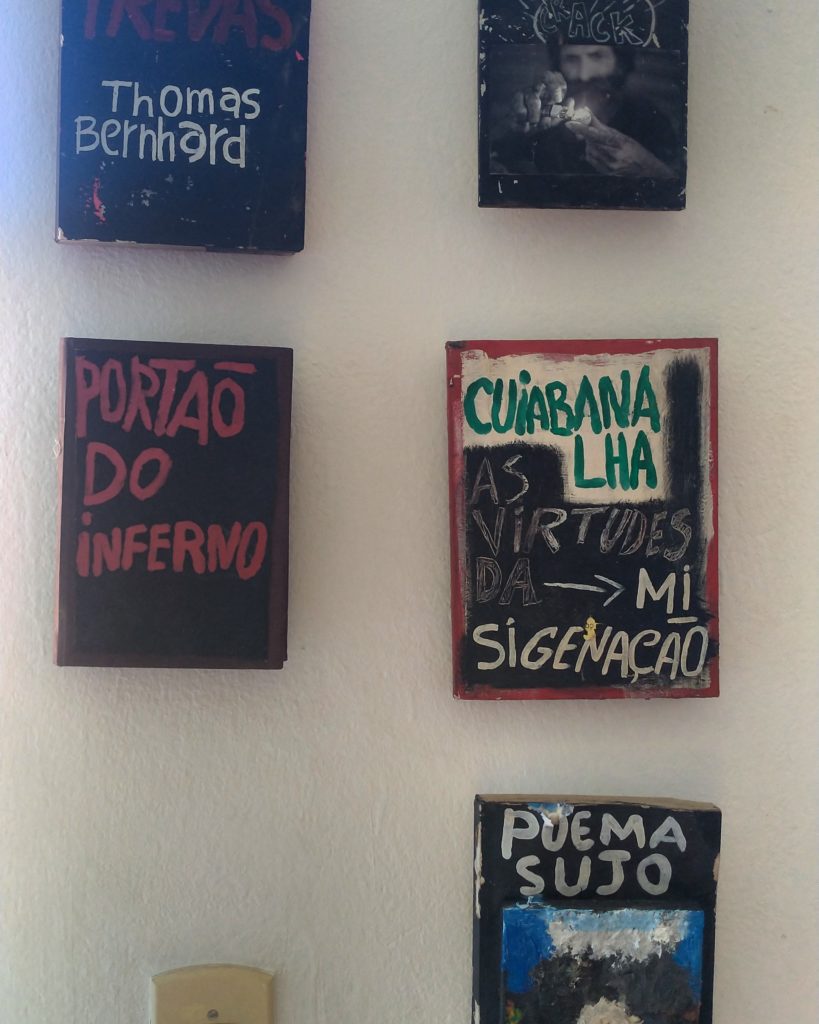 TREVAS
Thomas
Bernhard
CRACK
PORTAÕ
DO
iNFERNO
CUiABANA
LHA
AS
ViRTUDES
DA → Mi
SiGENAÇÃO
POEMA
SUJO